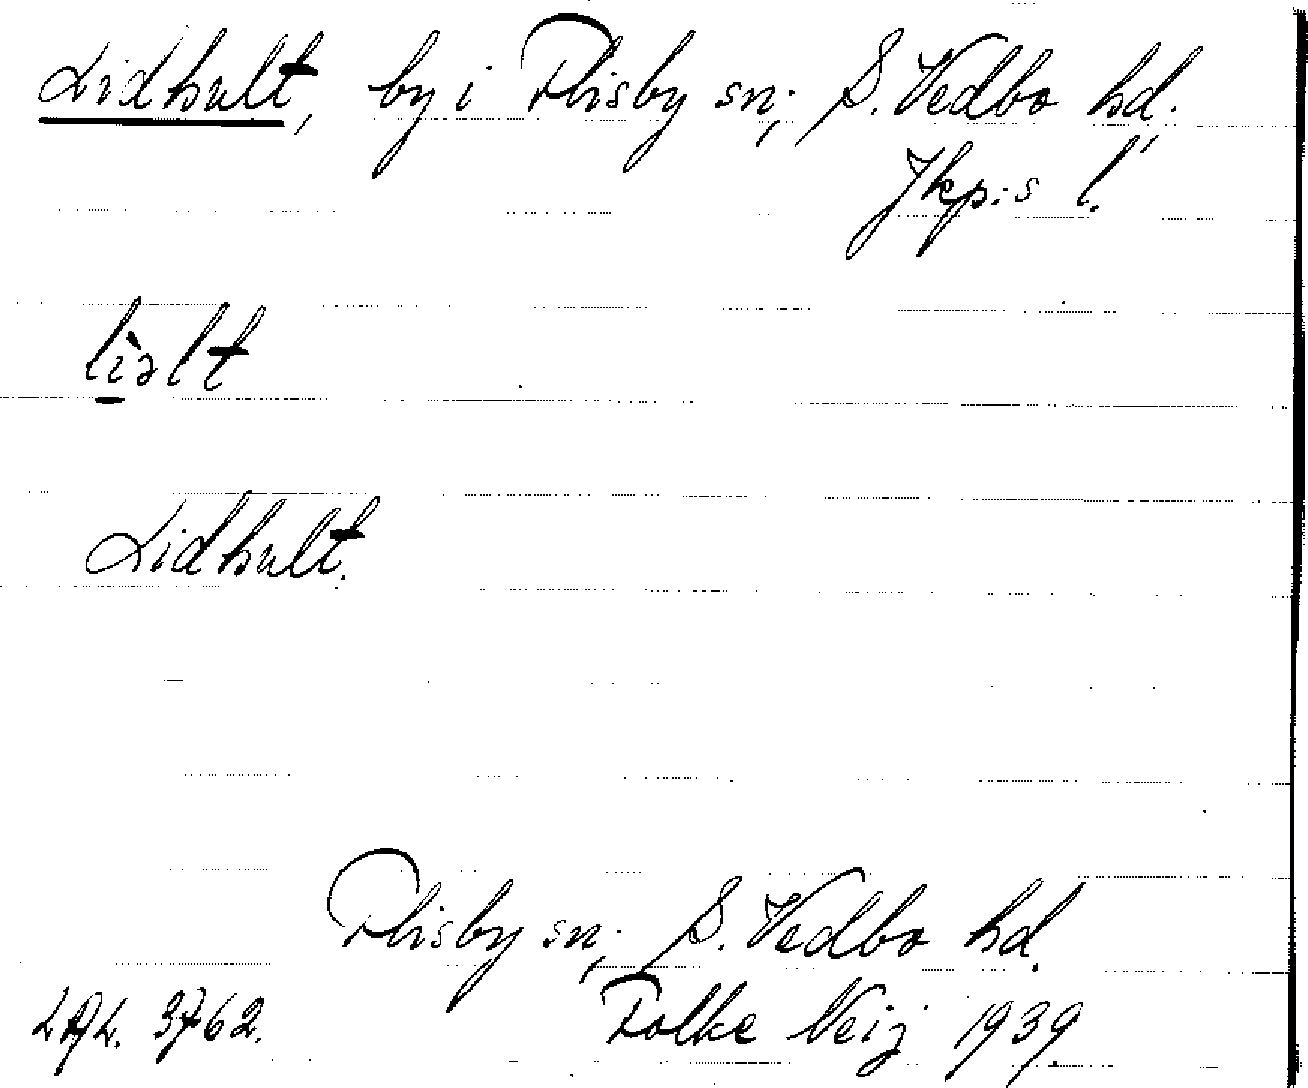 Lidhult, by i Flisby sn; S. Vedbo hd;
Jkp:s l.
lìəlt
Lidhult.
Flisby sn; S. Vedbo hd.
LAL. 3762. Folke Neij 1939